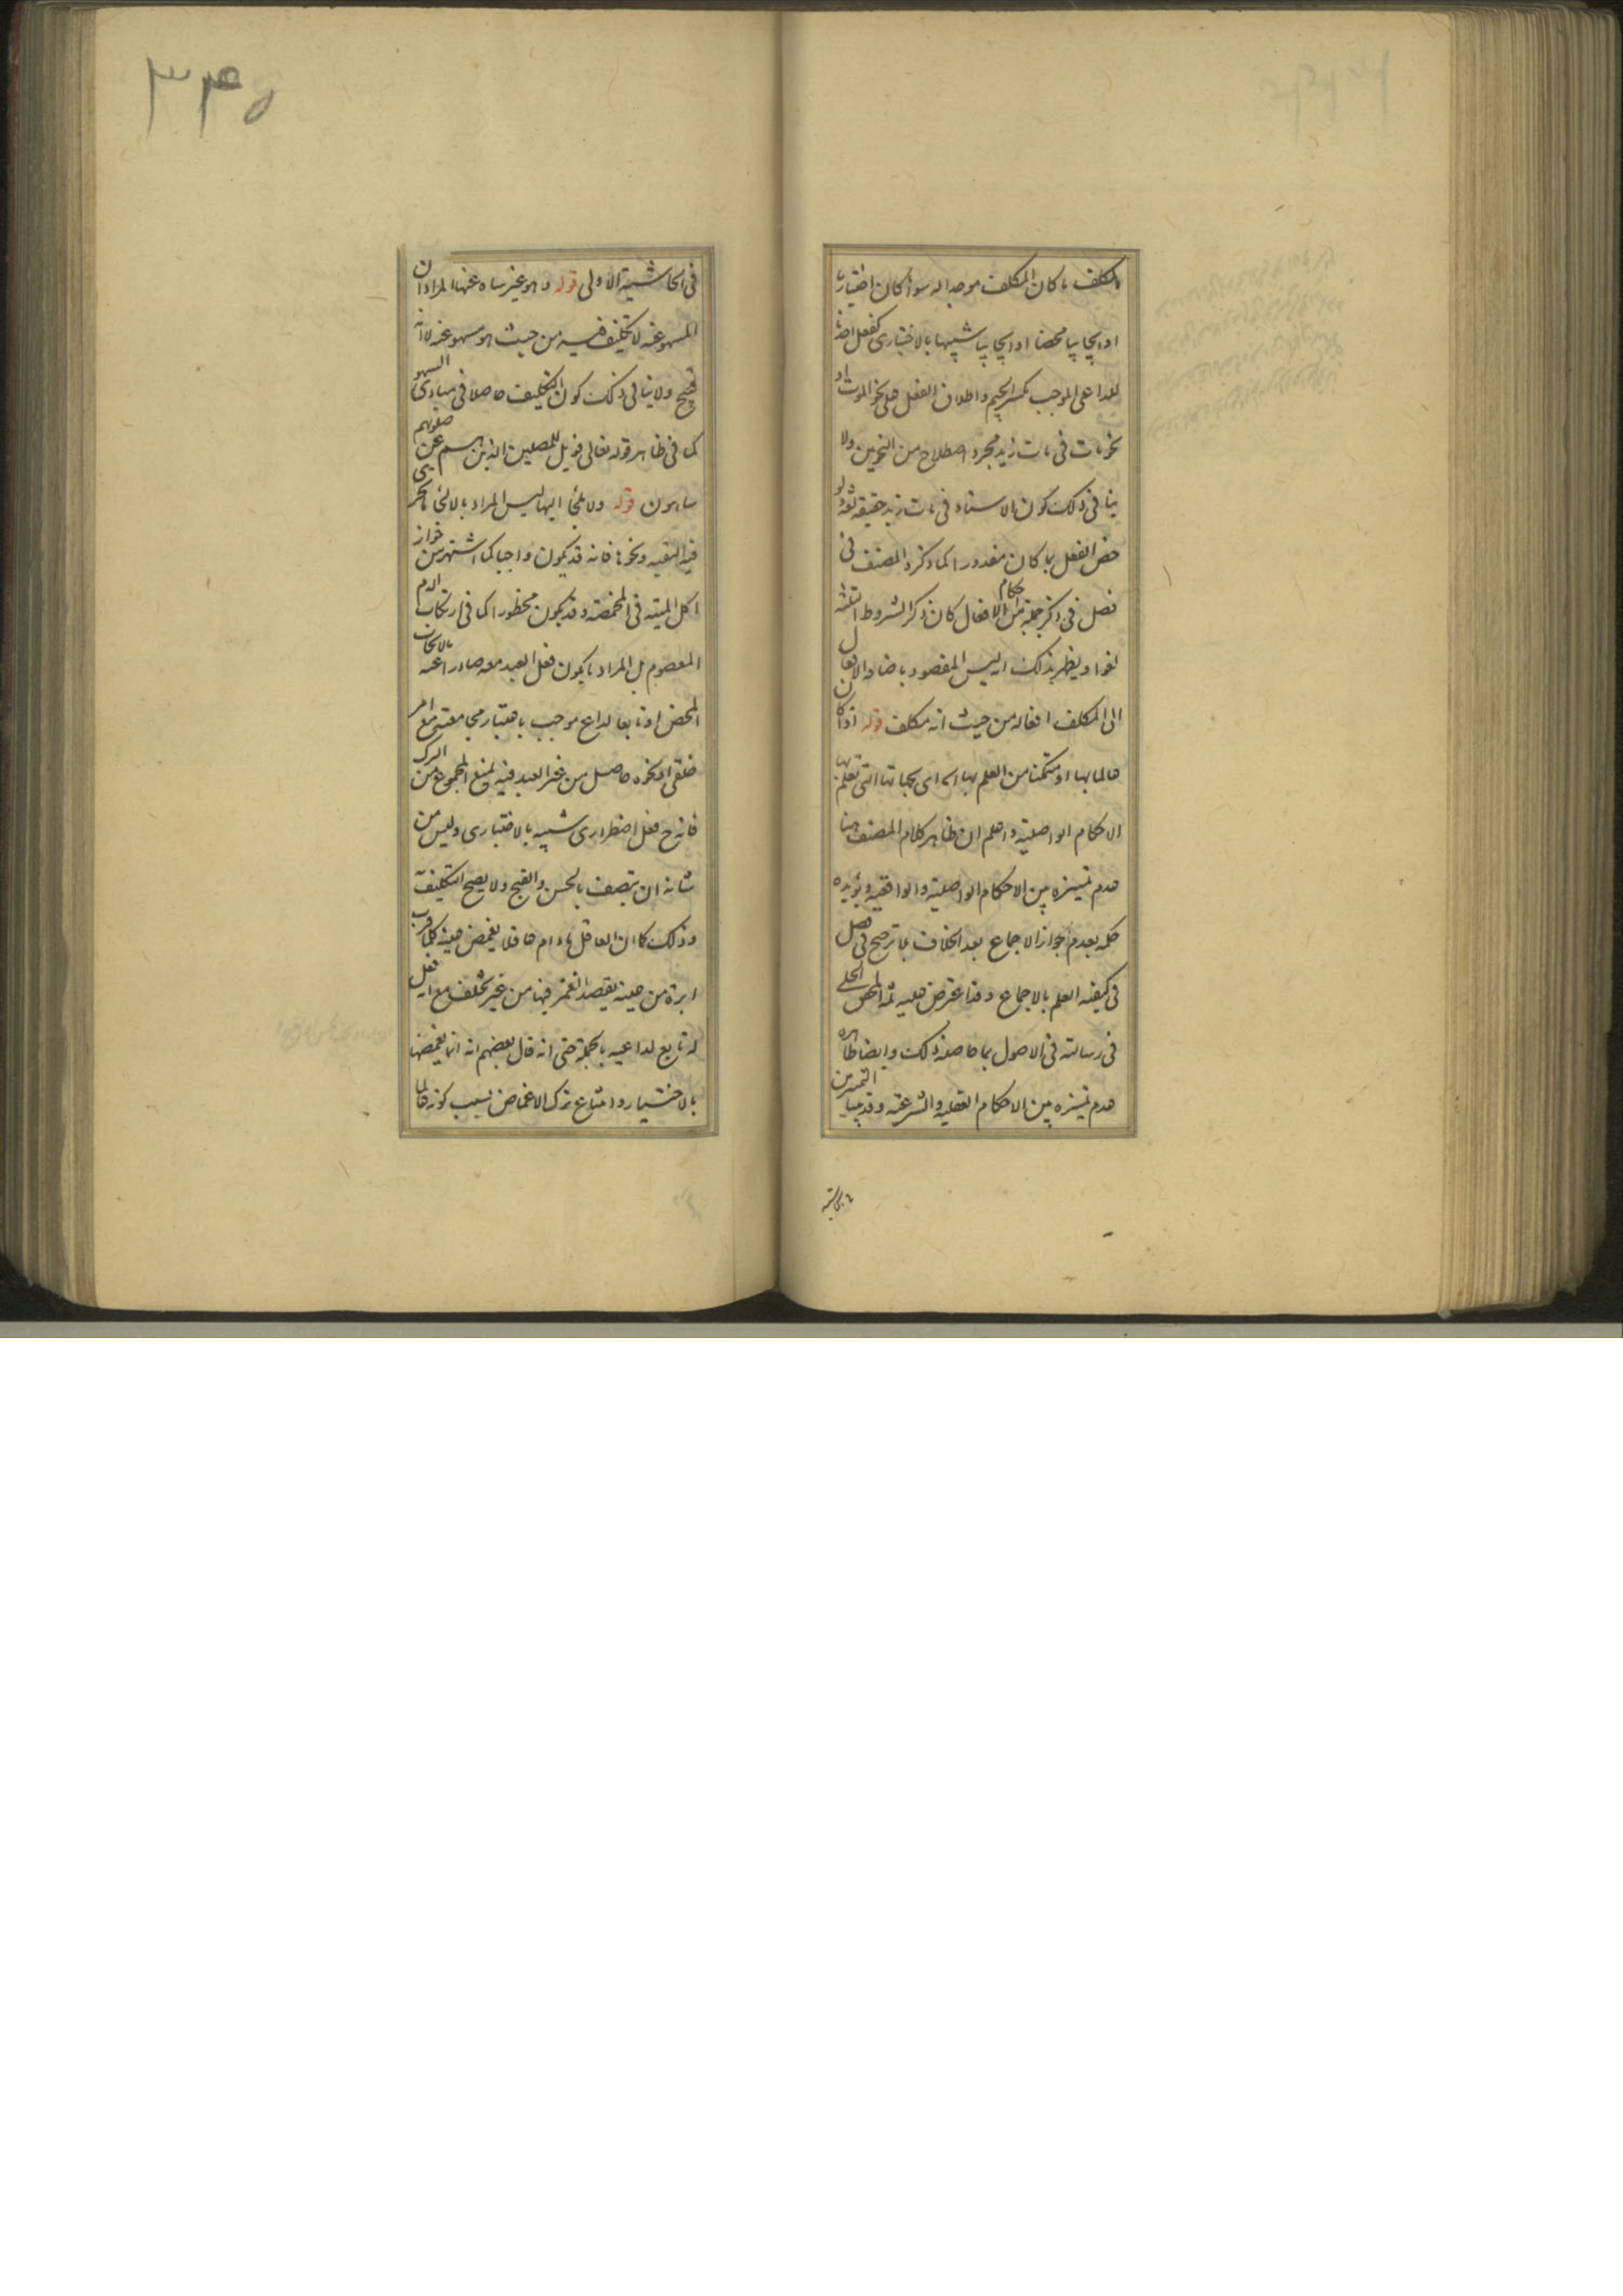 المكلف ما كان المكلف موجدا له سواء كان اختياريا
او ايجابيا محضا او ايجابيا شبيها بالاختيارى كفعل
للداعى الموجب بكسر الجيم واطلاق الفعل على نحو الموت او
نحو مات فى مات زيد مجرد اصطلاح من النحويين ولا
ينافى ذلك كون الاسناد فى مات زيد حقيقة لغة ولو
خص الفعل بما كان مقدورا كما ذكره المصنف فى
فصل فى ذكر جملة من احكام الافعال كان ذكر الشروط الثلثة
لغوا ويظهر بذلك انه ليس المقصود باضافة الافعال
الى المكلف افعاله من حيث انه مكلف قوله اذا كان
عالما بها او متمكنا من العلم بها اى بجهاتها التى تعلم بها
الاحكام الواصلية واعلم ان ظاهر كلام المصنف هنا
عدم تميزه بين الاحكام الواصلية والواقعية ويؤيده
حكمه بعدم جواز الاجماع بعد الخلاف كما ترجح فى فصل
فى كيفية العلم بالاجماع وقد اعترض عليه المحقق الحلى
فى رسالته فى الاصول بما حاصله ذلك وايضا ظاهره
عدم تميزه بين الاحكام العقلية والشرعية وقد بينا
فى الحاشية
٣٤٥
فى الحاشية الاولى قوله وهو غير ساه عنها المراد ان
المسهو عنه لا تكليف فيه من حيث هو مسهو عنه لانه
قبيح ولا ينافى ذلك كون التكليف حاصلا فى مبادى السهو
كما فى ظاهر قوله تعالى فويل للمصلين الذين هم عن صلوتهم
ساهون قوله ولا ملجأ اليها ليس المراد بالالجاء ما يجرى
فيه التقية ونحوها فانه قد يكون واجبا كما اشتهر من جواز
اكل الميتة فى المخمصة وقد يكون محظورا كما فى ارتكاب الدم
المعصوم بل المراد ما يكون فعل العبد معه صادرا عنه بالايجاب
المحض او تابعا لداع موجب باعتبار مجامعته مع امر
خلقى او نحوه حاصل من غير العبد فيه يمنع المجموع من الترك
فانه ح فعل اضطرارى شبيه بالاختيارى وليس من
شانه ان يتصف بالحسن والقبح ولا يصح التكليف به
وذلك كما ان العاقل ما دام عاقلا يغمض عينه كلما قرب
ابرة من عينه بقصد الغمز فيها من غير تخلف مع انه فعل
له تابع لداعيه بالجملة حتى انه قال بعضهم انه انما يغمضها
بالاختيار وامتناع ترك الاغماض بسبب كونه عالما